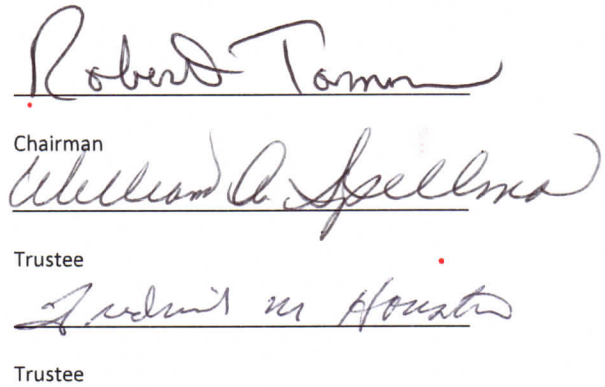 Robert Tomm
Chairman
William A. Spellman
Trustee
M Houston
Trustee